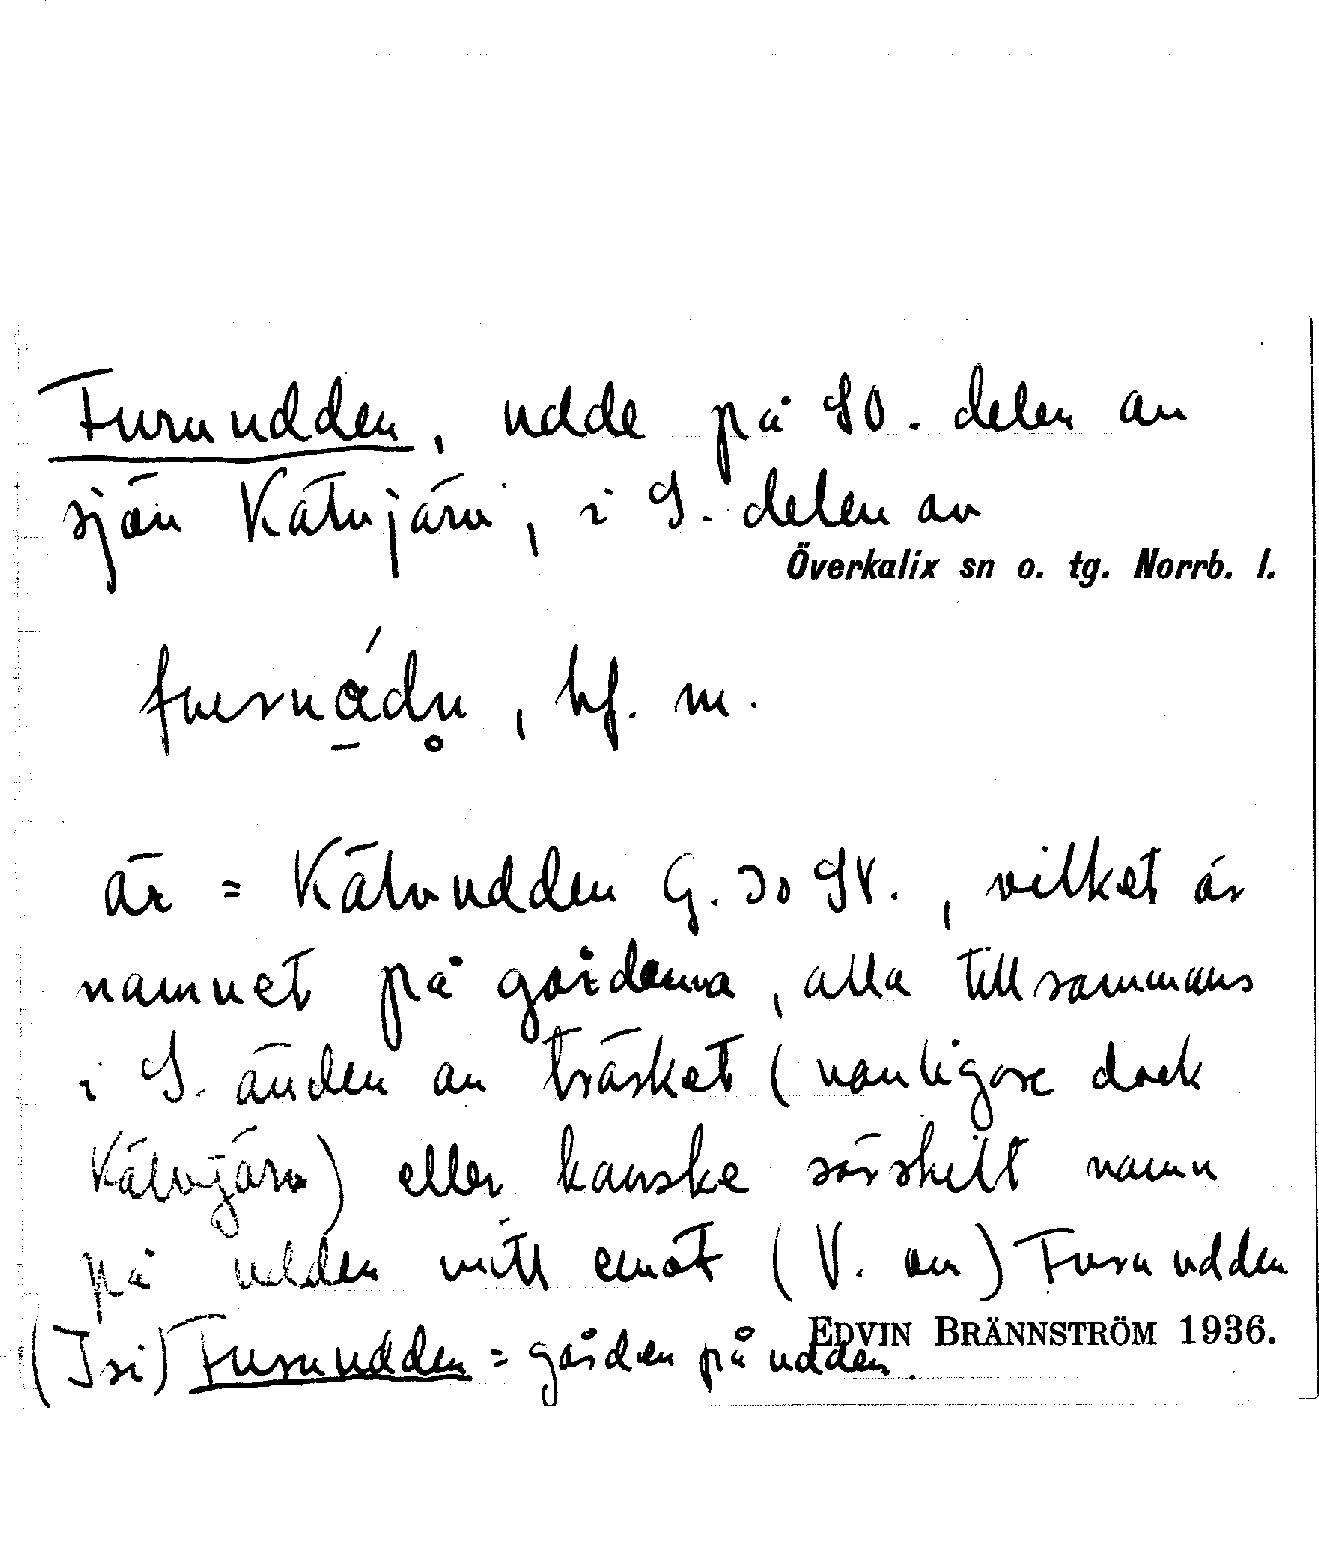 Furuudden, udde på SO. delen av
sjön Kätvjärv, i S. delen av
Överkalix sn o. tg. Norrb. l.
, bf. m.
är = Kälvudden G. 30 SV., vilket är
namnet på gårdarna, alla tillsammans
i S. änden av träsket (vanligare dock
Kälvjärv) eller kanske särskilt namn
på udden mitt emot (V. om) Furuudden
EDVIN BRÄNNSTRÖM 1936.
(Isi) Furuudden = gården på udden.